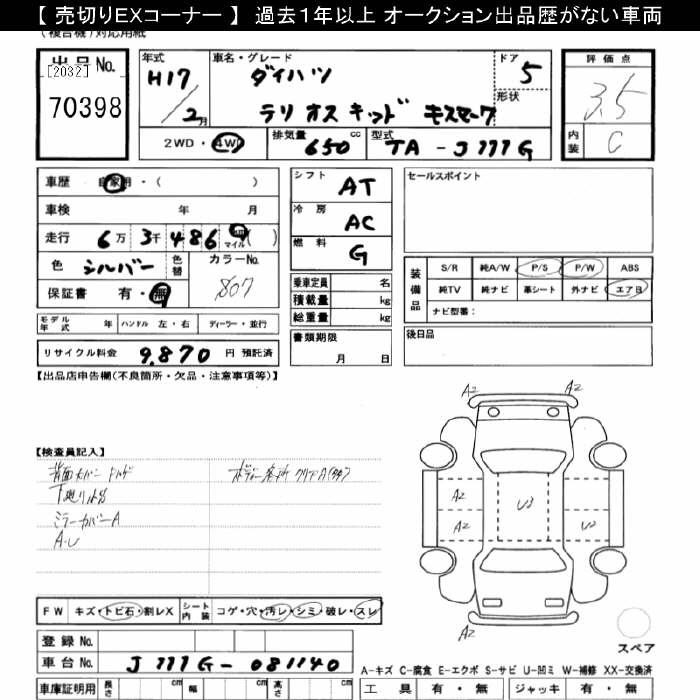 【 売切りEXコーナー 】 過去1年以上 オークション出品歴がない車両
(複合機)対応用紙
出品No.
[2032]
70398
年式 車名・グレード ドア
H17 / 2月 ダイハツ 5
テリオスキッド キスマーク 形状
2WD・4WD 排気量 650 cc 型式 TA-J111G
評価点
3.5
内装 C
車歴 自家用・( )
車検 年 月
走行 6万 3千 486 km マイル ( )
色 シルバー 色替 カラーNo. S07
保証書 有・無
モデル年式 年 ハンドル 左・右 ディーラー・並行
リサイクル料金 9,870 円 預託済
シフト AT
冷房 AC
燃料 G
乗車定員 名
積載量 kg
総重量 kg
書類期限
月 日
セールスポイント
装備品 S/R 純A/W P/S P/W ABS
純TV 純ナビ 革シート 外ナビ エアB
ナビ型番:
後日品
【出品店申告欄(不良箇所・欠品・注意事項等)】
【検査員記入】
下廻りサビ
ミラーカバーA
A・U
A2
A2
A2 U3
A2 U3
A2
スペア
FW キズ・トビ石・割レX シート内装 コゲ・穴・汚レ・シミ・破レ・スレ
登録No.
車台No. J111G-081140
車庫証明用 長さ cm 幅 cm 高さ cm
A-キズ C-腐食 E-エクボ S-サビ U-凹ミ W-補修 XX-交換済
工具 有・無 ジャッキ 有・無